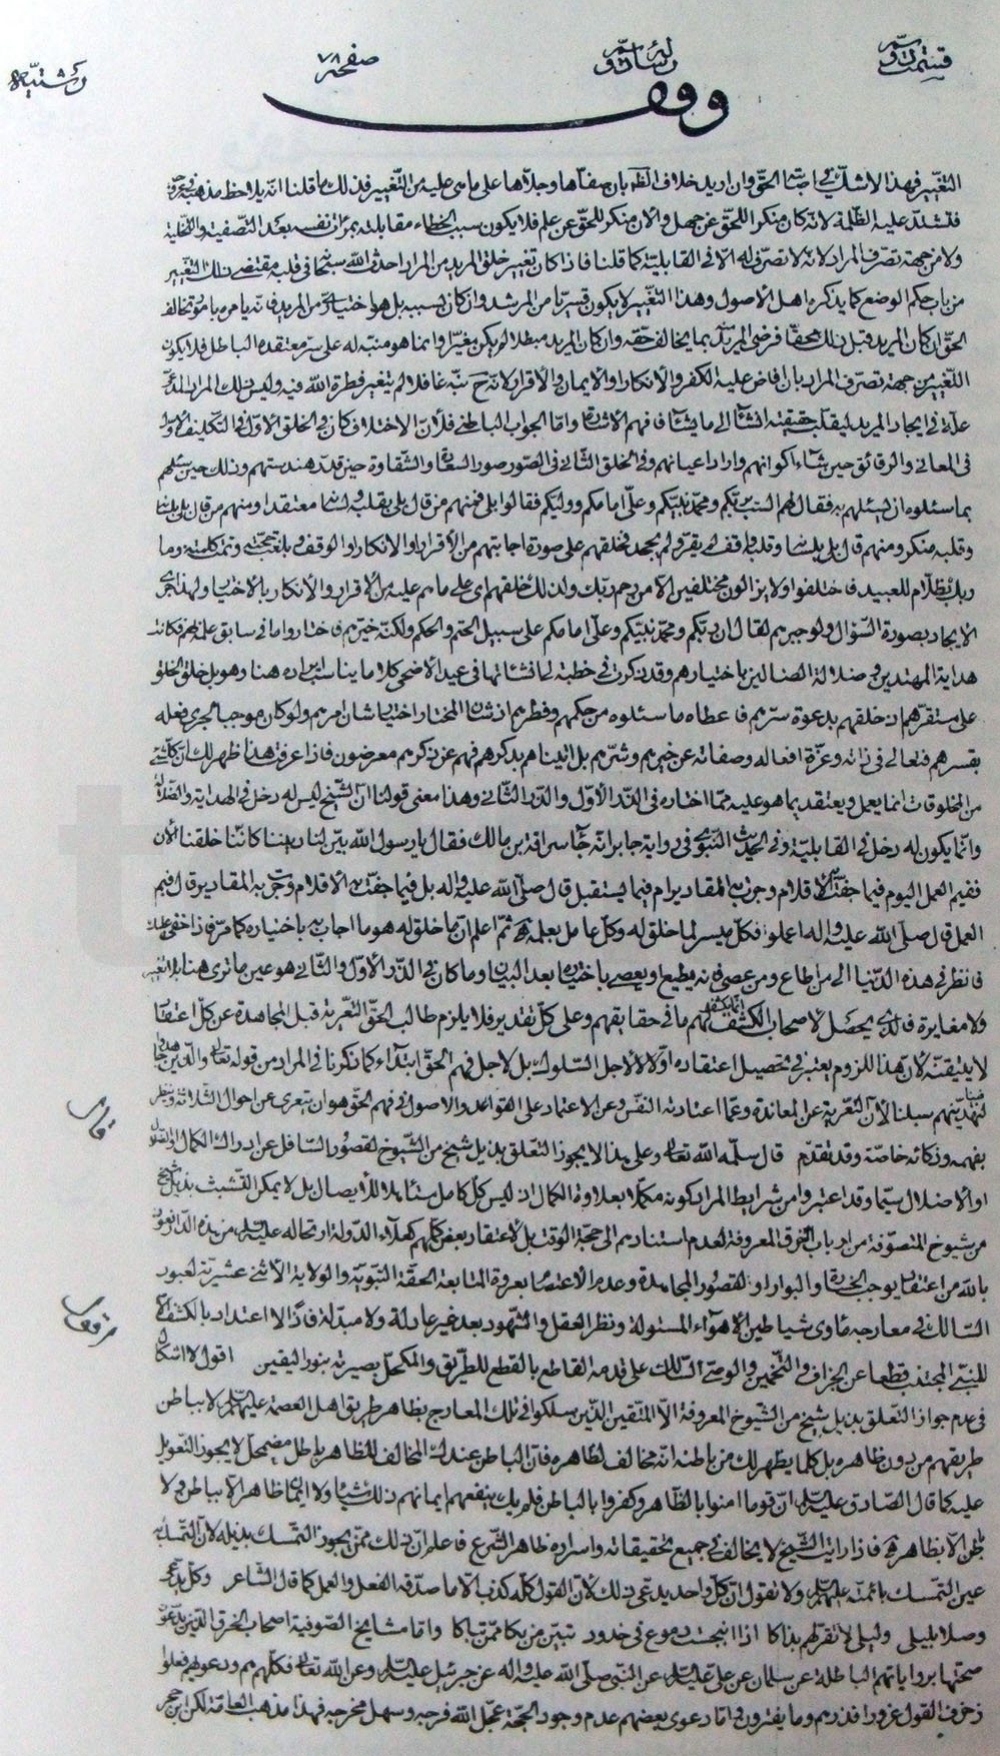 قسمت دوم رساله دوم صفحه ٧٨ رشتيه
وقف
التغيير فهذا لا شك في اجتناء الحق وان اريد خلاف الظاهر بان صفاها وجلاها على ما هي عليه من التغيير فذلك ما قلنا انه يلاحظ مذهبه في
فتشتد عليه الظلمة لانه كان منكرا للحق عن جهل والان منكر للحق عن علم فلا يكون سبب الخطاء مقابلته بمرآت نفسه بعد التصفية والتخلية
ولا من جهة تصرف المراد لانه لا تصرف له الا في القابلية كما قلنا فاذا كان تغيير خلق المريد من المراد احدث الله سبحانه في قلبه مقتضى ذلك التغيير
من باب حكم الوضع كما يذكره اهل الاصول وهذا التغيير لا يكون قسريا من المرشد وان كان بسببه بل هو اختيار من المريد فانه يامره بامور تخالف
الحق ان كان المريد قبل ذلك محقا فرضى المريد منه بما يخالف حقه وان كان المريد مبطلا لم يكن مغيرا وانما هو منبه له على سر معتقده الباطل فلا يكون
التغيير من جهة تصرف المراد بان افاض عليه الكفر والانكار او الايمان والاقرار لانه ح نبه غافلا لم يتغير فطرة الله فيه وليس ذلك المراد المدعى
علة في ايجاد المريد ليقلب حقيقته انشاء الى ما يشاء فافهم الاشارة واما الجواب الباطني فلان الاختلاف كان في الخلق الاول في التكليف الاول
في المعاني والرقائق حين شاء اكوانهم واراد اعيانهم وفي الخلق الثاني في الصور صور السعادة والشقاوة حين قدر هندستهم وذلك حين سئلهم
بما سئلوه ان يسئلهم به فقال لهم الست بربكم ومحمد نبيكم وعلي امامكم ووليكم فقالوا بلى فمنهم من قال بلى بقلبه ولسانه معتقدا ومنهم من قال بلى بلسانه
وقلبه منكر ومنهم قال بلى بلسانه وقلبه واقف لم يقر ولم يجحد فخلقهم على صورة اجابتهم من الاقرار والانكار او الوقف وبلغت حجته وتمت كلمته وما
ربك بظلام للعبيد فاختلفوا ولا يزالون مختلفين الا من رحم ربك ولذلك خلقهم اي على ما هم عليه من الاقرار والانكار بالاختيار ولهذا جرى
الايجاد بصورة السؤال ولو جبرهم لقال ان ربكم ومحمد نبيكم وعلي امامكم على سبيل الحتم والحكم ولكنه خيرهم فاختاروا ما في سابق علمه بهم فكانت
هداية المهتدين وضلالة الضالين باختيارهم وقد ذكرت في خطبة لي انشاتها في عيد الاضحى كلاما يناسب ايراده هنا وهو بل خلق الخلق
على مستقرهم اذ خلقهم بدعوة سرهم فاعطاه ما سئلوه من حكمهم وفطرهم اذ شاء المختار اختيارا شان امرهم ولو كان موجبا لجرى فعله
بقسرهم فتعالى في ذاته وعزة افعاله وصفاته عن خيرهم وشرهم بل اتيناهم بذكرهم فهم عن ذكرهم معرضون فاذا عرفت هذا ظهر لك ان كل شيء
من المخلوقات انما يعمل ويعتقد بما هو عليه مما اختاره في الذر الاول والذر الثاني وهذا معنى قولنا ان الشيخ ليس له دخل في الهداية والضلالة
وانما يكون له دخل في القابلية وفي الحديث النبوي في رواية جابر انه جاء سراقة بن مالك فقال يا رسول الله بين لنا ديننا كاننا خلقنا الان
ففيم العمل اليوم فيما جفت به الاقلام وجرت به المقادير ام فيما يستقبل قال صلى الله عليه واله بل فيما جفت به الاقلام وجرت به المقادير قال ففيم
العمل قال صلى الله عليه واله اعملوا فكل ميسر لما خلق له وكل عامل بعمله ثم اعلم ان ما خلق له هو ما اجاب به باختياره كما مر فاذا خفي عليك
فانظر في هذه الدنيا الى من اطاع ومن عصى فانه يطيع او يعصى باختياره بعد البيان وما كان في الذر الاول والثاني هو عين ما ترى هنا بلا تغير
ولا مغايرة فالذي يحصل لاصحاب الكشف انما يكشف لهم ما في حقايقهم وعلى كل تقدير فلا يلزم طالب الحق التعرية قبل المجاهدة عن كل اعتقاد
لا يتيقنه لان هذا اللزوم يعتبر في تحصيل اعتقاده اولا لا لاجل السلوك بل لاجل فهم الحق ابتداء كما ذكرنا في المراد من قوله تعالى والذين جاهدوا فينا
لنهدينهم سبلنا لان التعرية عن المعاندة وعما اعتادته النفس وعن الاعتماد على القواعد والاصول في فهم الحق هو ان يتعرى عن احوال الثلاثة وينظر
بفهمه وذكائه خاصة وقد تقدم قال سلمه الله تعالى وعلى هذا لا يجوز التعلق بذيل شيخ من الشيوخ لقصور السافل عن ادراك الكمال
او الاضلال سيما وقد اعتبروا من شرايط المراد كونه مكملا بعلاوة الكمال اذ ليس كل كامل مستاهلا للايصال بل لا يمكن التشبث بذيل شيخ
من شيوخ المتصوفة من ارباب الخرق المعروفة لعدم استنادهم الى حجة الوقت بل لاعتقاد بعض كلهم كهلاء الدولة ارتحاله عليه السلام من هذه الدار نعوذ
بالله من اعتقاد يوجب الخسارة والبوار او لقصور المجاهدة وعدم الاعتصام بعروة المتابعة الحقة النبوية والولاية الاثني عشرية لعبور
السالك في معارجه مأوى شياطين الاهواء المستولة ونظر العقل والشهود بعد غير عادلة ولا مبدلة فاذا لا اعتداد بالكشف الا
للنبي المجتنب قطعا عن الجزاف والتخمين والوصي السالك على قدمه القاطع بالقطع للطريق والمكحل بصيرته بنور اليقين اقول لا اشكال
في عدم جواز التعلق بذيل شيخ من الشيوخ المعروفة الا المتقين الذين سلكوا في تلك المعارج بظاهر طريق اهل العصمة عليهم السلام لا بباطن
طريقهم من دون ظاهره بل كلما يظهر لك من باطنه انه مخالف لظاهره فان الباطن عندك المخالف للظاهر باطل مضمحل لا يجوز التعويل
عليه كما قال الصادق عليه السلام ان قوما امنوا بالظاهر وكفروا بالباطن فلم يك ينفعهم ايمانهم ذلك شيئا ولا ايمان ظاهر الا بباطن ولا
باطن الا بظاهر فاذا رايت الشيخ لا يخالف في جميع تحقيقاته واسراره ظاهر الشرع فاعلم ان ذلك ممن يجوز التمسك بذيله لان التمسك به
عين التمسك بائمته عليهم السلام ولا تقول ان كل واحد يدعي ذلك لان القول كله كذب الا ما صدقه الفعل والعمل كما قال الشاعر وكل يدعي
وصلا بليلى وليلى لا تقر لهم بذاكا اذا انبجست دموع في خدود تبين من بكا ممن تباكا واما مشايخ الصوفية اصحاب الخرق الذين يدعون
صحتها برواياتهم الباطلة عن سلمان عن علي عليه السلام عن النبي صلى الله عليه واله عن جبرئيل عليه السلام وعن الله تعالى فكلهم هم ودعواهم فعلوا
زخرف القول غرورا فذرهم وما يفترون واما دعوى بعضهم عدم وجود الحجة عجل الله فرجه وسهل مخرجه فهذا مذهب العامة لكن ابن حجر